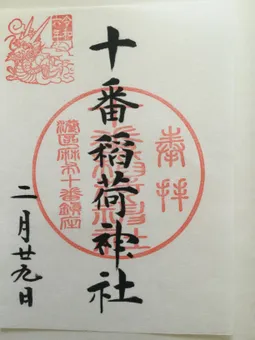 奉拝
十番稲荷神社
港区麻布十番鎮座
二月廿九日